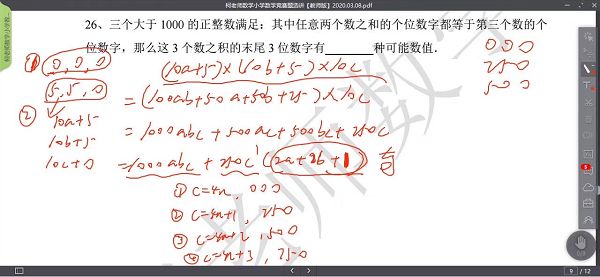 柯老师数学小学数学竞赛营选讲【教师版】2020.03.08.pdf
26、三个大于 1000 的正整数满足：其中任意两个数之和的个位数字都等于第三个数的个
位数字，那么这 3 个数之积的末尾 3 位数字有______种可能数值．
① 0, 0, 0
(10a+5)×(10b+5)×10c
000
250
500
5, 5, 0
=(100ab+50a+50b+25)×10c
② 10a+5
10b+5
10c+0
=1000abc+500ac+500bc+250c
=1000abc+250c(2a+2b+1) 奇
① c=4n, 000
② c=4n+1, 250
③ c=4n+2, 500
④ c=4n+3, 750
9 / 12